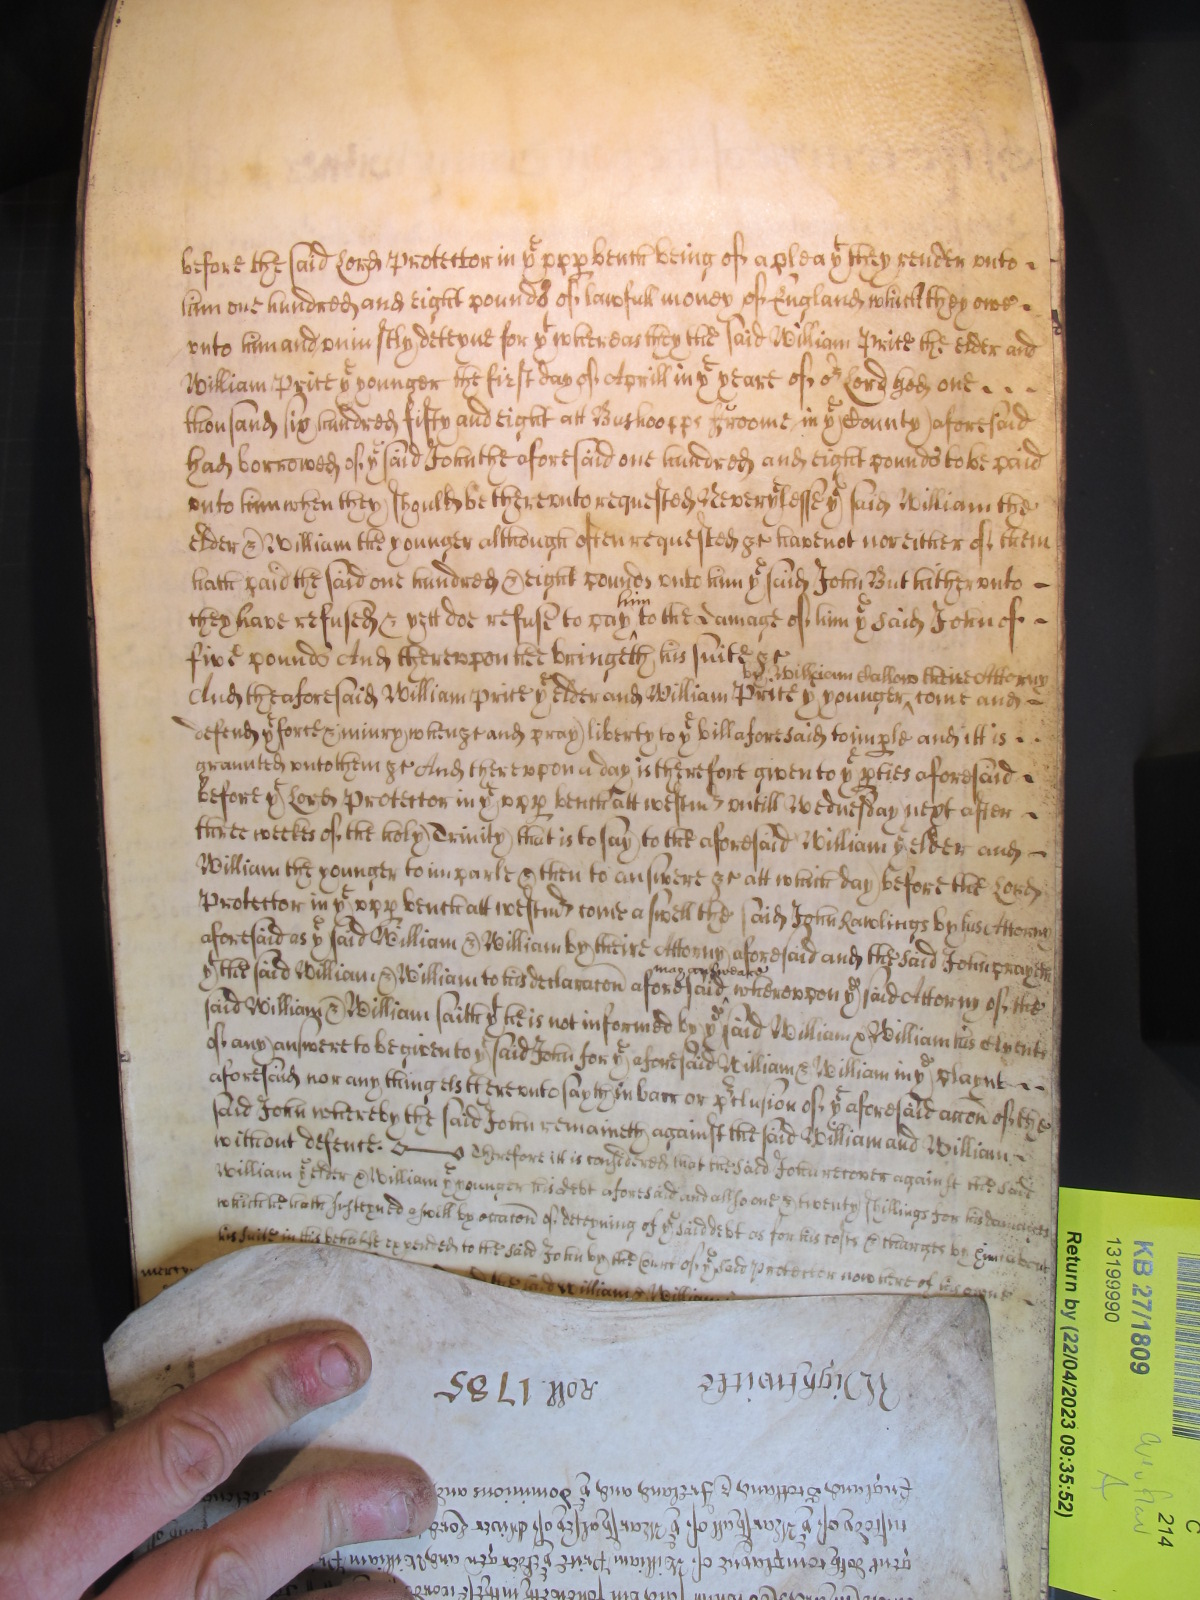 before the said Lord Protector in yͤ upp bench being of a plea yᵗ they render unto
him one hundred and eight pounds of lawfull money of England which they owe
unto him and uniustly deteyne for yᵗ whereas they the said William Price the elder and
William Price yͤ younger the first day of Aprill in yͤ yeare of oʳ Lord God one
thousand six hundred fifty and eight att Bushoopps Froome in yͤ County aforesaid
had borrowed of yͤ said John the aforesaid one hundred and eight pounds to be paid
unto him when they should be thereunto requested Neverylesse yͤ said William the
elder & William the younger although often requested &c have not nor either of them
hath paid the said one hundred & eight pounds unto him yͤ said John But hitherunto
they have refused & yett doe refuse to pay him to the damage of him yͤ said John of
five pounds And thereupon hee bringeth his suite &c
And the aforesaid William Price yͤ elder and William Price yͤ younger by William Hallow theire Attorny come and
defend yͤ force & iniury when &c and pray liberty to yͤ bill aforesaid to imple and itt is
graunted unto them &c And thereupon a day is therefore given to yͤ pties aforesaid
before yͤ Lord Protector in yͤ upp bench att westmʳ untill Wednesday next after
three weekes of the holy Trinity that is to say to the aforesaid William yͤ elder and
William the younger to imparle & then to answere &c att which day before the Lord
Protector in yͤ upp bench att westmʳ come aswell the said John Rawlings by his Attorny
aforesaid as yͤ said William & William by theire Attorny aforesaid and the said John prayeth
yᵗ the said William & William to his declaracon aforesaid may answeare whereuppon yͤ said Attorny of the
said William & William saith yᵗ he is not informed by yͤ said William & William his Clyents
of any answere to be given to yͤ said John for yͤ aforesaid William & William in yͤ playnt
aforesaid nor any thing els thereunto sayth in barr or pclusion of yͤ aforesaid accon of the
said John whereby the said John remaineth against the said William and William
without defence. Therefore itt is considered that the said John recover against the said
William yͤ elder & William yͤ younger his debt aforesaid and allso one & twenty shillings for his damages
which he hath susteyned aswell by occacon of deteyning of yͤ said debt as for his costs & charges by
his suite in this behalfe expended to the said John by the Court of yͤ said Protector now here of his
mercy the said William & William
Wightwicke Roll 1785
England Scottland & Ireland and yͤ dominions
custody of yͤ Marshall of yͤ Marshalsey of
complaine of William Price yͤ Elder gen and William
KB 27/1809
13199990
Return by (22/04/2023 09:35:52)
214
C
A